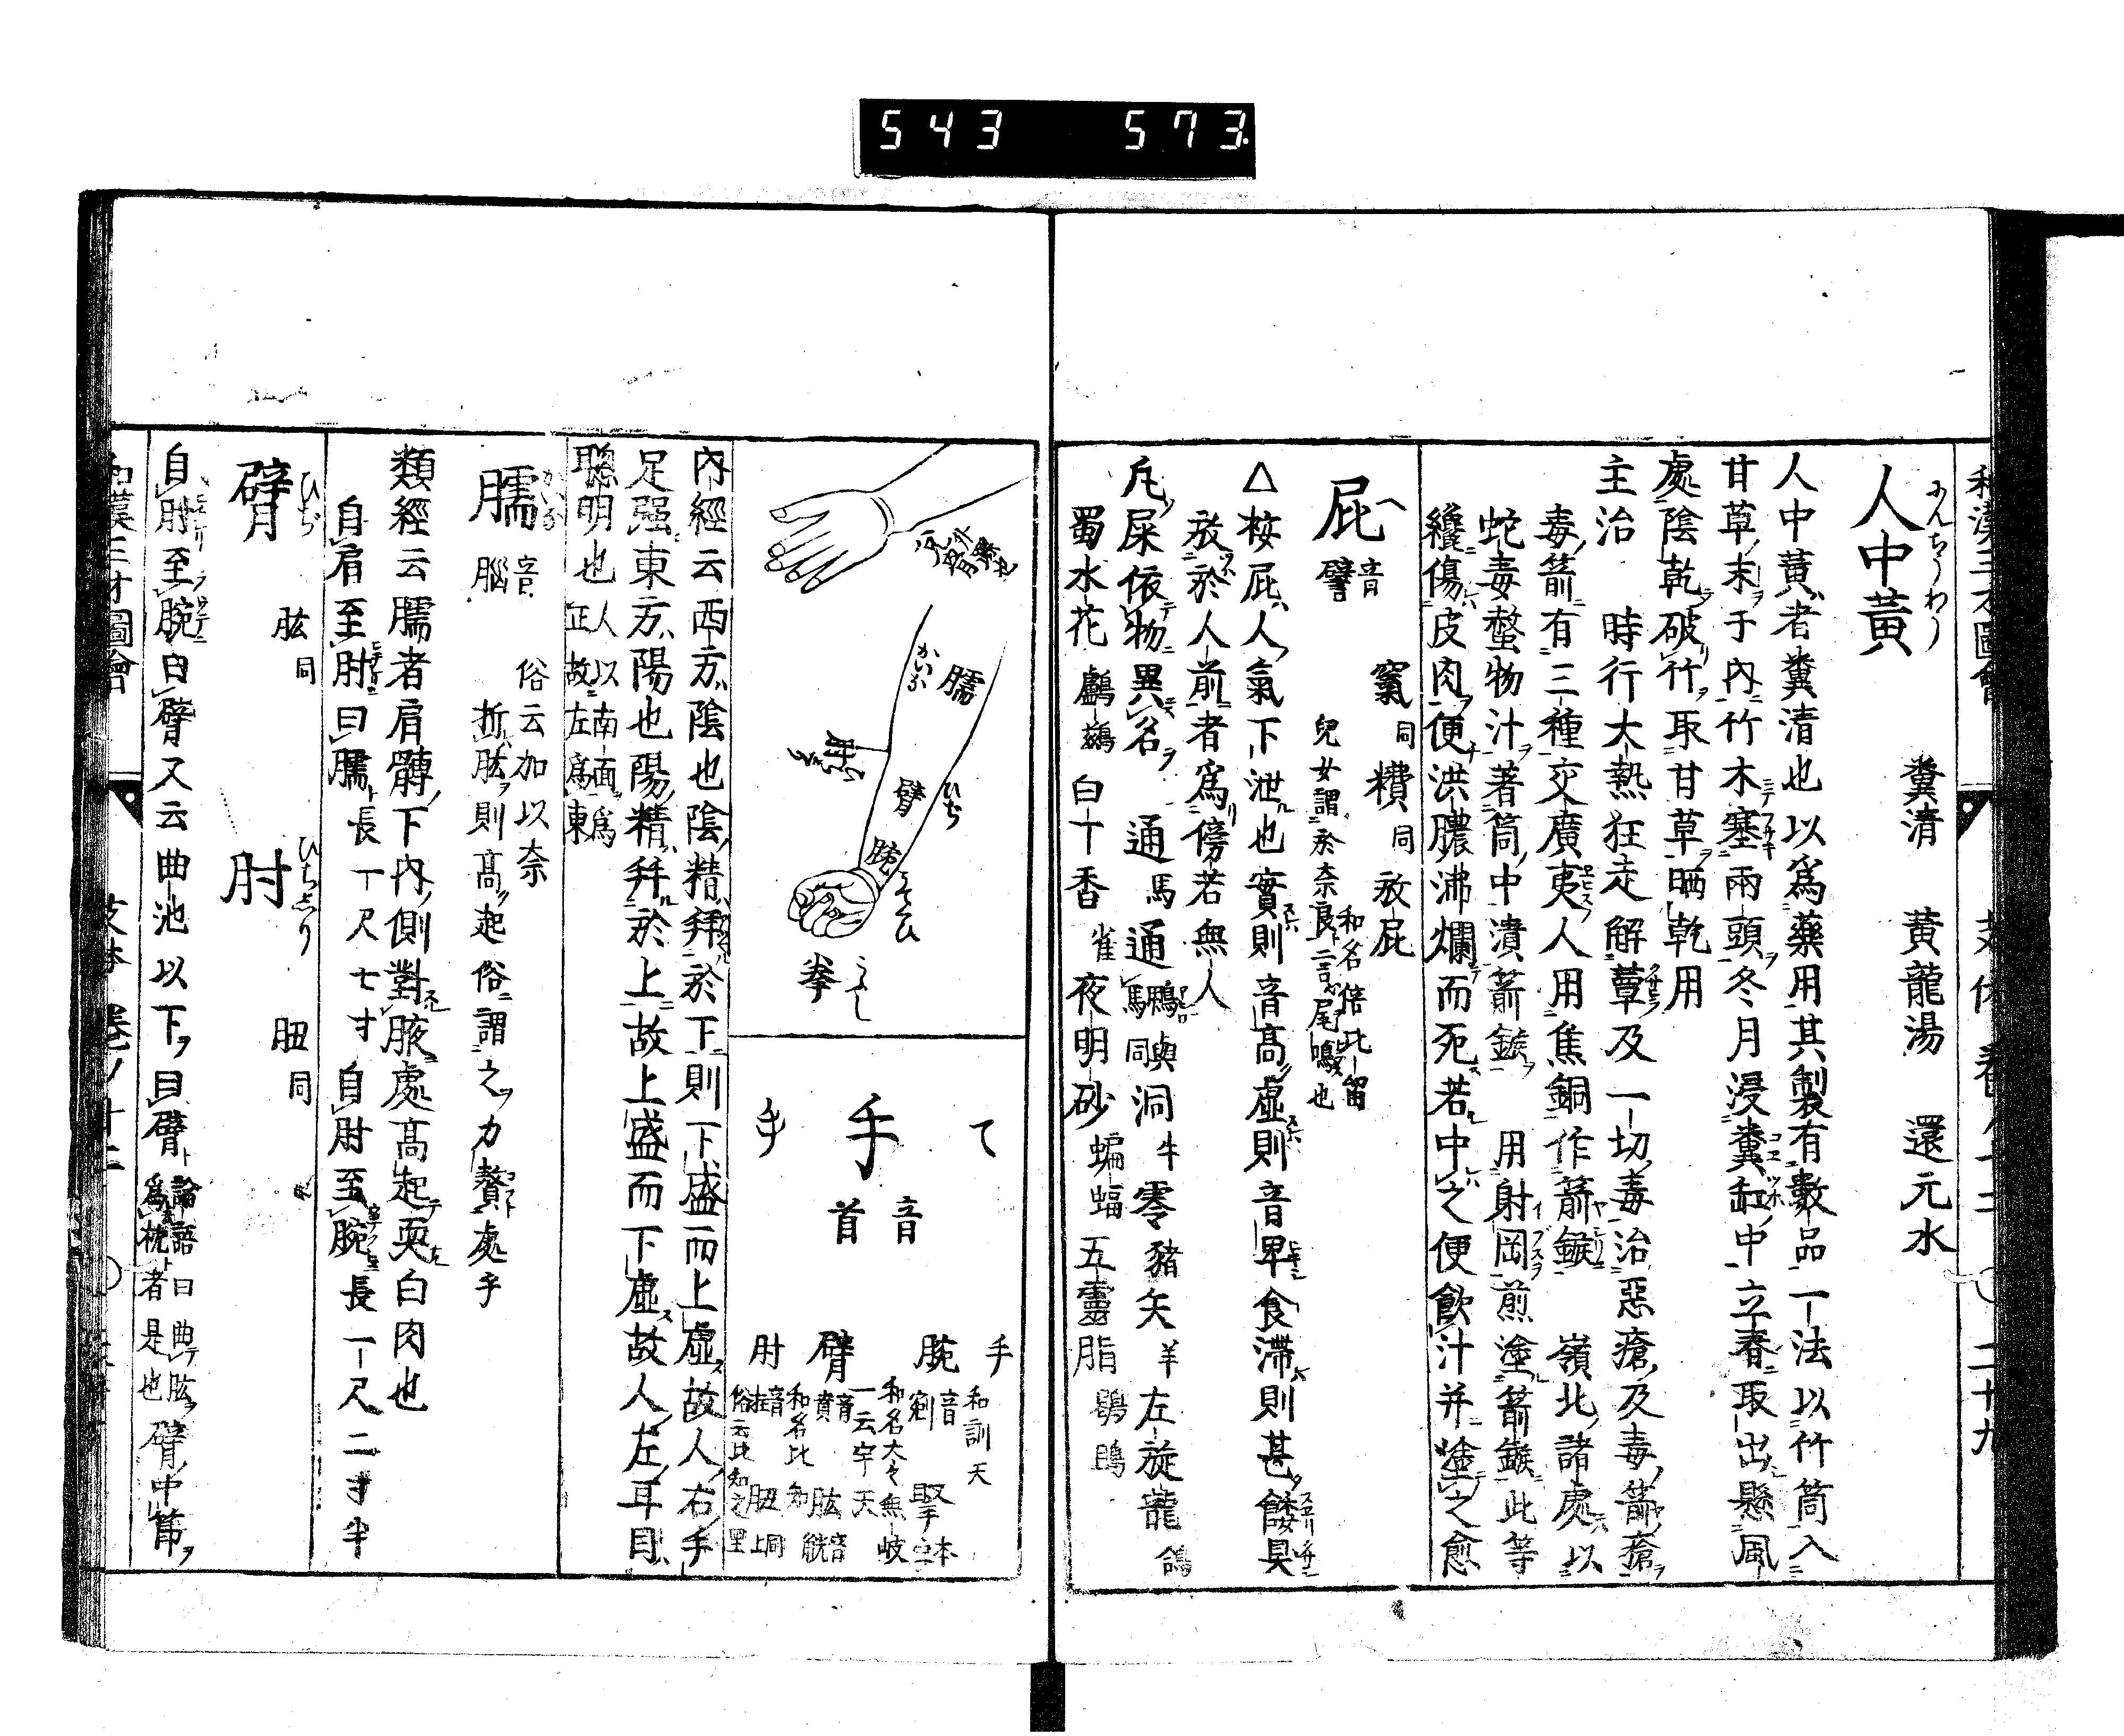 543 573
人中黃 にんちうわう
糞清 黃龍湯 還元水
人中黃者糞清也以爲藥用其製有數品一法以竹筒入
甘草末于内竹木塞兩頭冬月浸糞缸中立春取出懸風
處陰乾破竹取甘草晒乾用
主治 時行大熱狂走解蕈及一切毒治惡瘡及毒箭瘡
毒箭有三種交廣夷人用焦銅作箭鏃 嶺北諸處以
蛇毒螫物汁著筒中漬箭鏃 用射罔煎塗箭鏃此等
纔傷皮肉便洪膿沸爛而死若中之便飮汁并塗之愈
屁 へ
音譬
䆁同 䊧同 放屁
和名倍比留
兒女謂於奈良二言尾鳴也
△桉屁人氣下泄也實則音高虛則音卑食滯則甚餿臭
放於人前者爲傍若無人
凡屎依物異名 通馬 通與馬同 洞牛 零豬 矢羊 左旋龍鴿
蜀水花鸕鷀 白丁香雀 夜明砂蝙蝠 五靈脂鶡鴠
手 て
音首
手 和訓天
腕 音
和名太々無岐
一云宇天
臂 音
和名比知
肱 音
肘 音
俗云比知之里
臑 かいな
臂 ひぢ
腕 うで
拳 こぶし
内經云西方陰也陰精拜於下則下盛而上虛故人右手
足强東方陽也陽精拜於上故上盛而下虛故人左耳目
聰明也人以南面爲正故左爲東
臑 かいな
音腦
俗云加以奈
折肱則高起俗謂之力贅處乎
類經云臑者肩髆下内側對腋處高起耎白肉也
自肩至肘曰臑長一尺七寸自肘至腕長一尺二寸半
臂 ひぢ
肱同
肘 ひぢしり
胆同
自肘至腕曰臂又云曲池以下曰臂論語曰曲肱爲枕者是也臂中節
和漢三才圖會